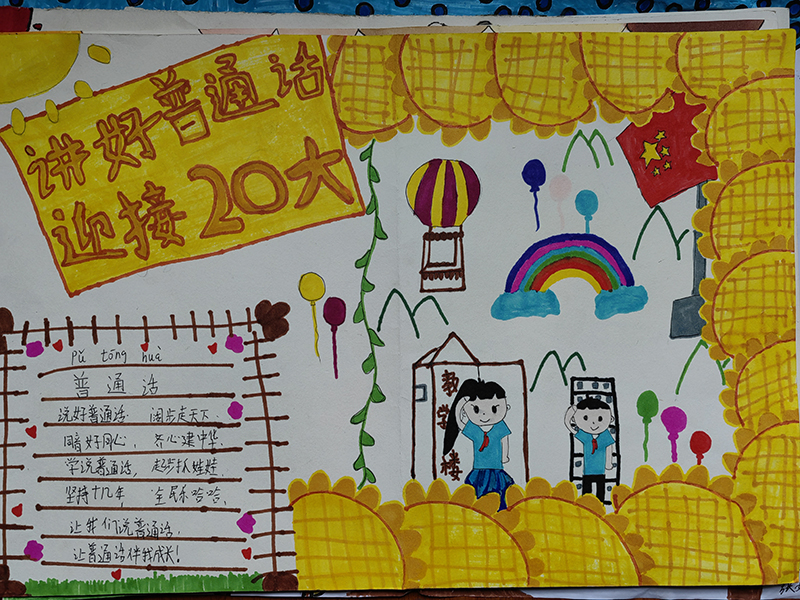 讲好普通话
迎接20大
pǔ tōng huà
普通话
说好普通话. 阔步走天下.
同音好同心, 齐心建中华.
学说普通话, 走步扶娃娃.
坚持十几年, 全民乐哈哈.
让我们说普通话,
让普通话伴我成长!
教学楼